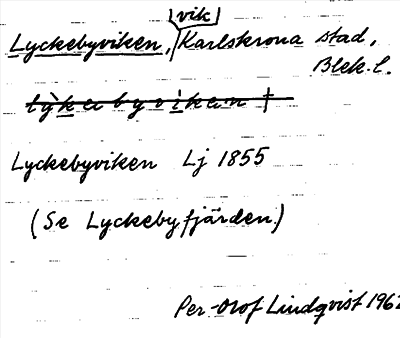 vik
Lyckebyviken, Karlskrona stad,
Blek. l.
lỳkabyvikan †
Lyckebyviken Lj 1855
(Se Lyckebyfjärden.)
Per-Olof Lindqvist 1962